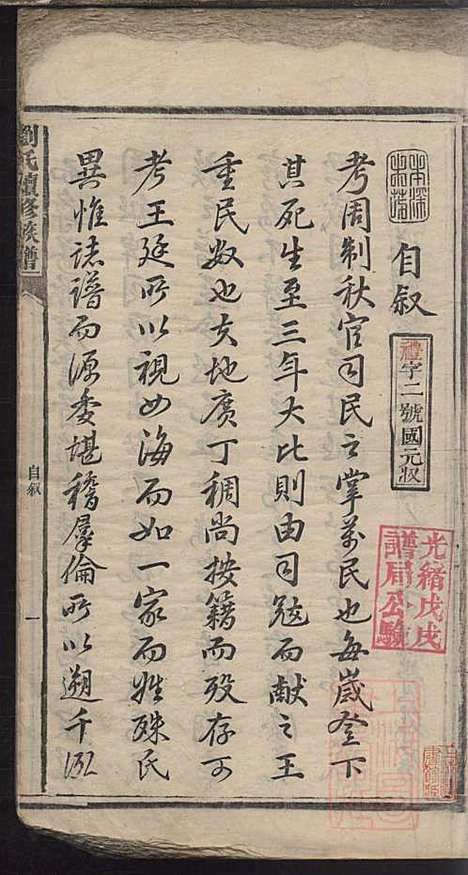 自叙
禮字二號國元收
光緒戊戌
譜局公驗
考周制秋官司民之掌萬民也每歲登下
其死生至三年大比則由司寇而献之王
重民数也夫地廣丁稠尚按籍而殁存可
考王廷所以視四海而如一家而姓殊氏
異惟誌譜而源委堪稽羣倫所以遡千
劉氏續修族譜
自叙
一